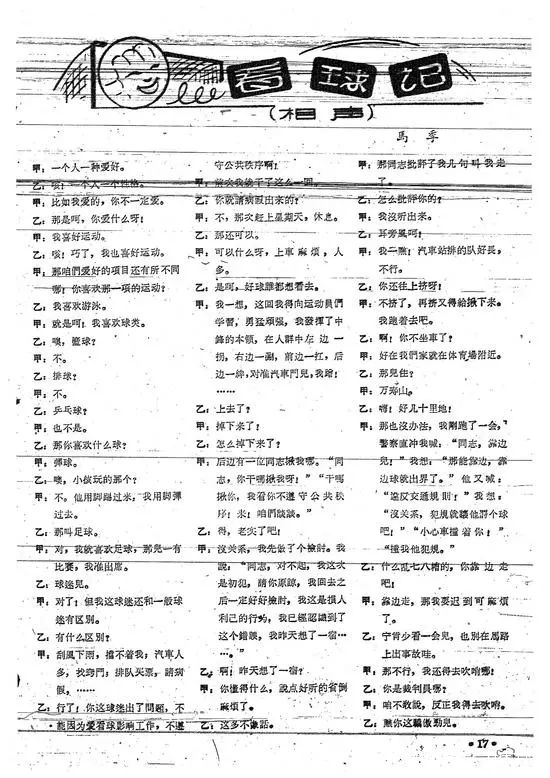 看球记
(相声)
馬季
甲：一个人一种爱好。
乙：咳！一个人一个性格。
甲：比如我爱的，你不一定爱。
乙：那是呵，你爱什么呀！
甲：我喜好运动。
乙：咳！巧了，我也喜好运动。
甲：那咱們爱好的項目还有所不同
哪！你喜欢那一項的运动？
乙：我喜欢游泳。
甲：就是呵！我喜欢球类。
乙：噢，籃球？
甲：不。
乙：排球？
甲：不。
乙：乒乓球？
甲：也不是。
乙：那你喜欢什么球？
甲：弹球。
乙：噢，小孩玩的那个？
甲：不。他用脚踢过来，我用脚弹
过去。
乙：那叫足球。
甲：对，我就喜欢足球，那兒一有
比賽，我准出席。
乙：球迷兒。
甲：对了！但我这球迷还和一般球
迷有区别。
乙：有什么区别？
甲：刮風下雨，擋不着我；汽車人
多，找竅門；排队买票，請病
假，……
乙：行了！你这球迷出了問題，不
能因为爱看球影响工作，不遵
守公共秩序啊！
甲：前次我就干了这么一回。
乙：你就請病假出来的？
甲：不，那次赶上星期天，休息。
乙：那还可以。
甲：可以什么呀，上車麻煩，人
多。
乙：是呵，好球誰都想看去。
甲：我一想，这回我得向运动員們
学習，勇猛頑强，我發揮了中
鋒的本領，在人群中左边一
拐，右边一涮，前边一扛，后
边一绊，对准汽車門兒，我踏！
……
乙：上去了？
甲：掉下来了！
乙：怎么掉下来了？
甲：后边有一位同志揪我哪。“同
志，你干嘛揪我呀！”“干嘛
揪你，我看你不遵守公共秩
序！来！咱們談談。”
乙：得，老实了吧！
甲：沒关系，我先做了个檢討。我
說：“同志，对不起，我这次
是初犯，請你原諒，我回去之
后一定好好檢討，我这是損人
利己的行为，我已經認識到了
这个錯誤，我昨天想了一宿…
…。”
乙：啊！昨天想了一宿？
甲：你懂得什么，說点好听的省倒
麻煩了。
乙：这多不像話。
甲：那同志批評了我几句叫我走
了。
乙：怎么批評你的？
甲：我沒听出来。
乙：耳旁風呵！
甲：我一瞧！汽車站排的队好長，
不行。
乙：你还往上挤呀！
甲：不挤了，再挤又得給揪下来。
我跑着去吧。
乙：啊！你不坐車了？
甲：好在我們家就在体育場附近。
乙：那兒住？
甲：万寿山。
乙：嗬！好几十里地！
甲：那也沒办法，我剛跑了一会，
警察直冲我喊：“同志，靠边
兒！”我想：“那能靠边，靠
边球就出界了。”他又喊：
“違反交通規則！”我想：
“沒关系，犯規就讓他罰个球
吧！”“小心車撞着你！”
“撞我他犯規。”
乙：什么乱七八糟的，你靠边走
吧！
甲：靠边走，那我要迟到可麻煩
了。
乙：宁肯少看一会兒，也別在馬路
上出事故哇。
甲：那不行，我还得去吹哨哪！
乙：你是裁判員哪？
甲：咱不敢說，反正我得去吹哨。
乙：瞧你这驕傲勁兒。
•17•